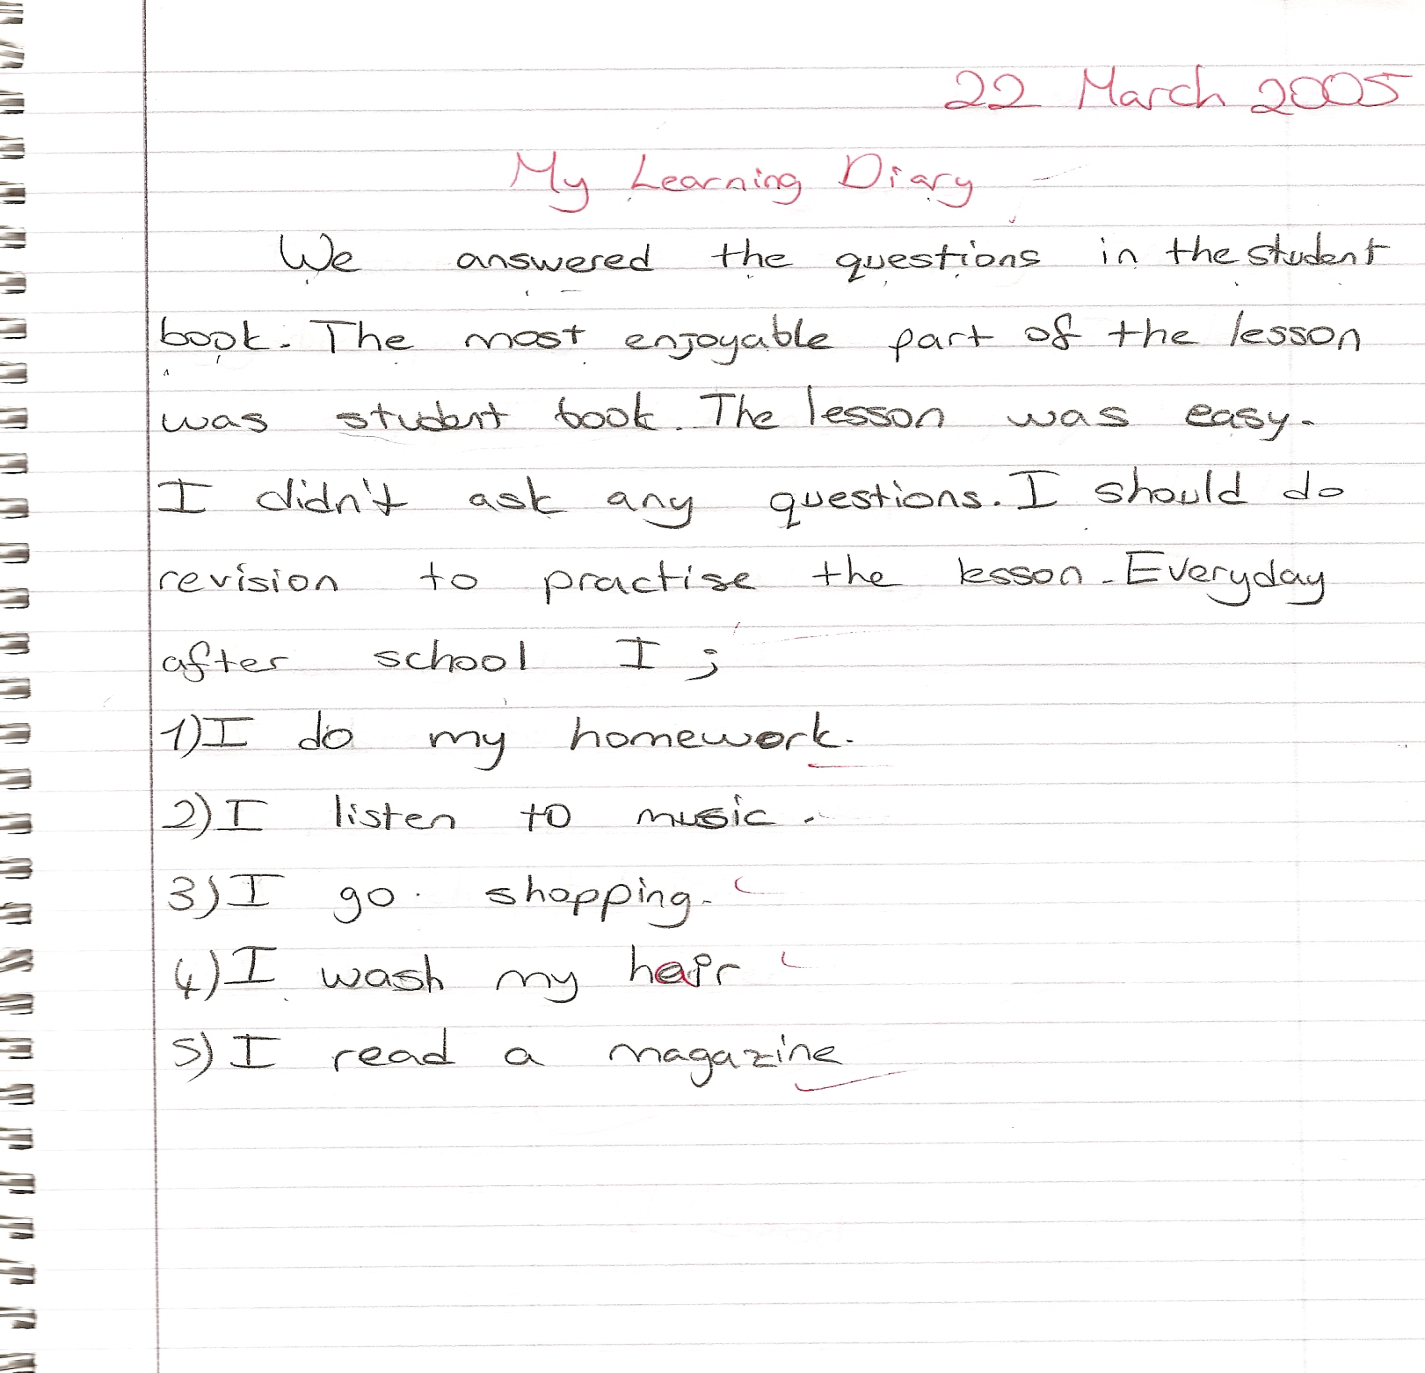 22 March 2005
My Learning Diary
We answered the questions in the student
book. The most enjoyable part of the lesson
was student book. The lesson was easy.
I didn't ask any questions. I should do
revision to practise the lesson. Everyday
after school I ;
1) I do my homework.
2) I listen to music.
3) I go shopping.
4) I wash my hair
5) I read a magazine